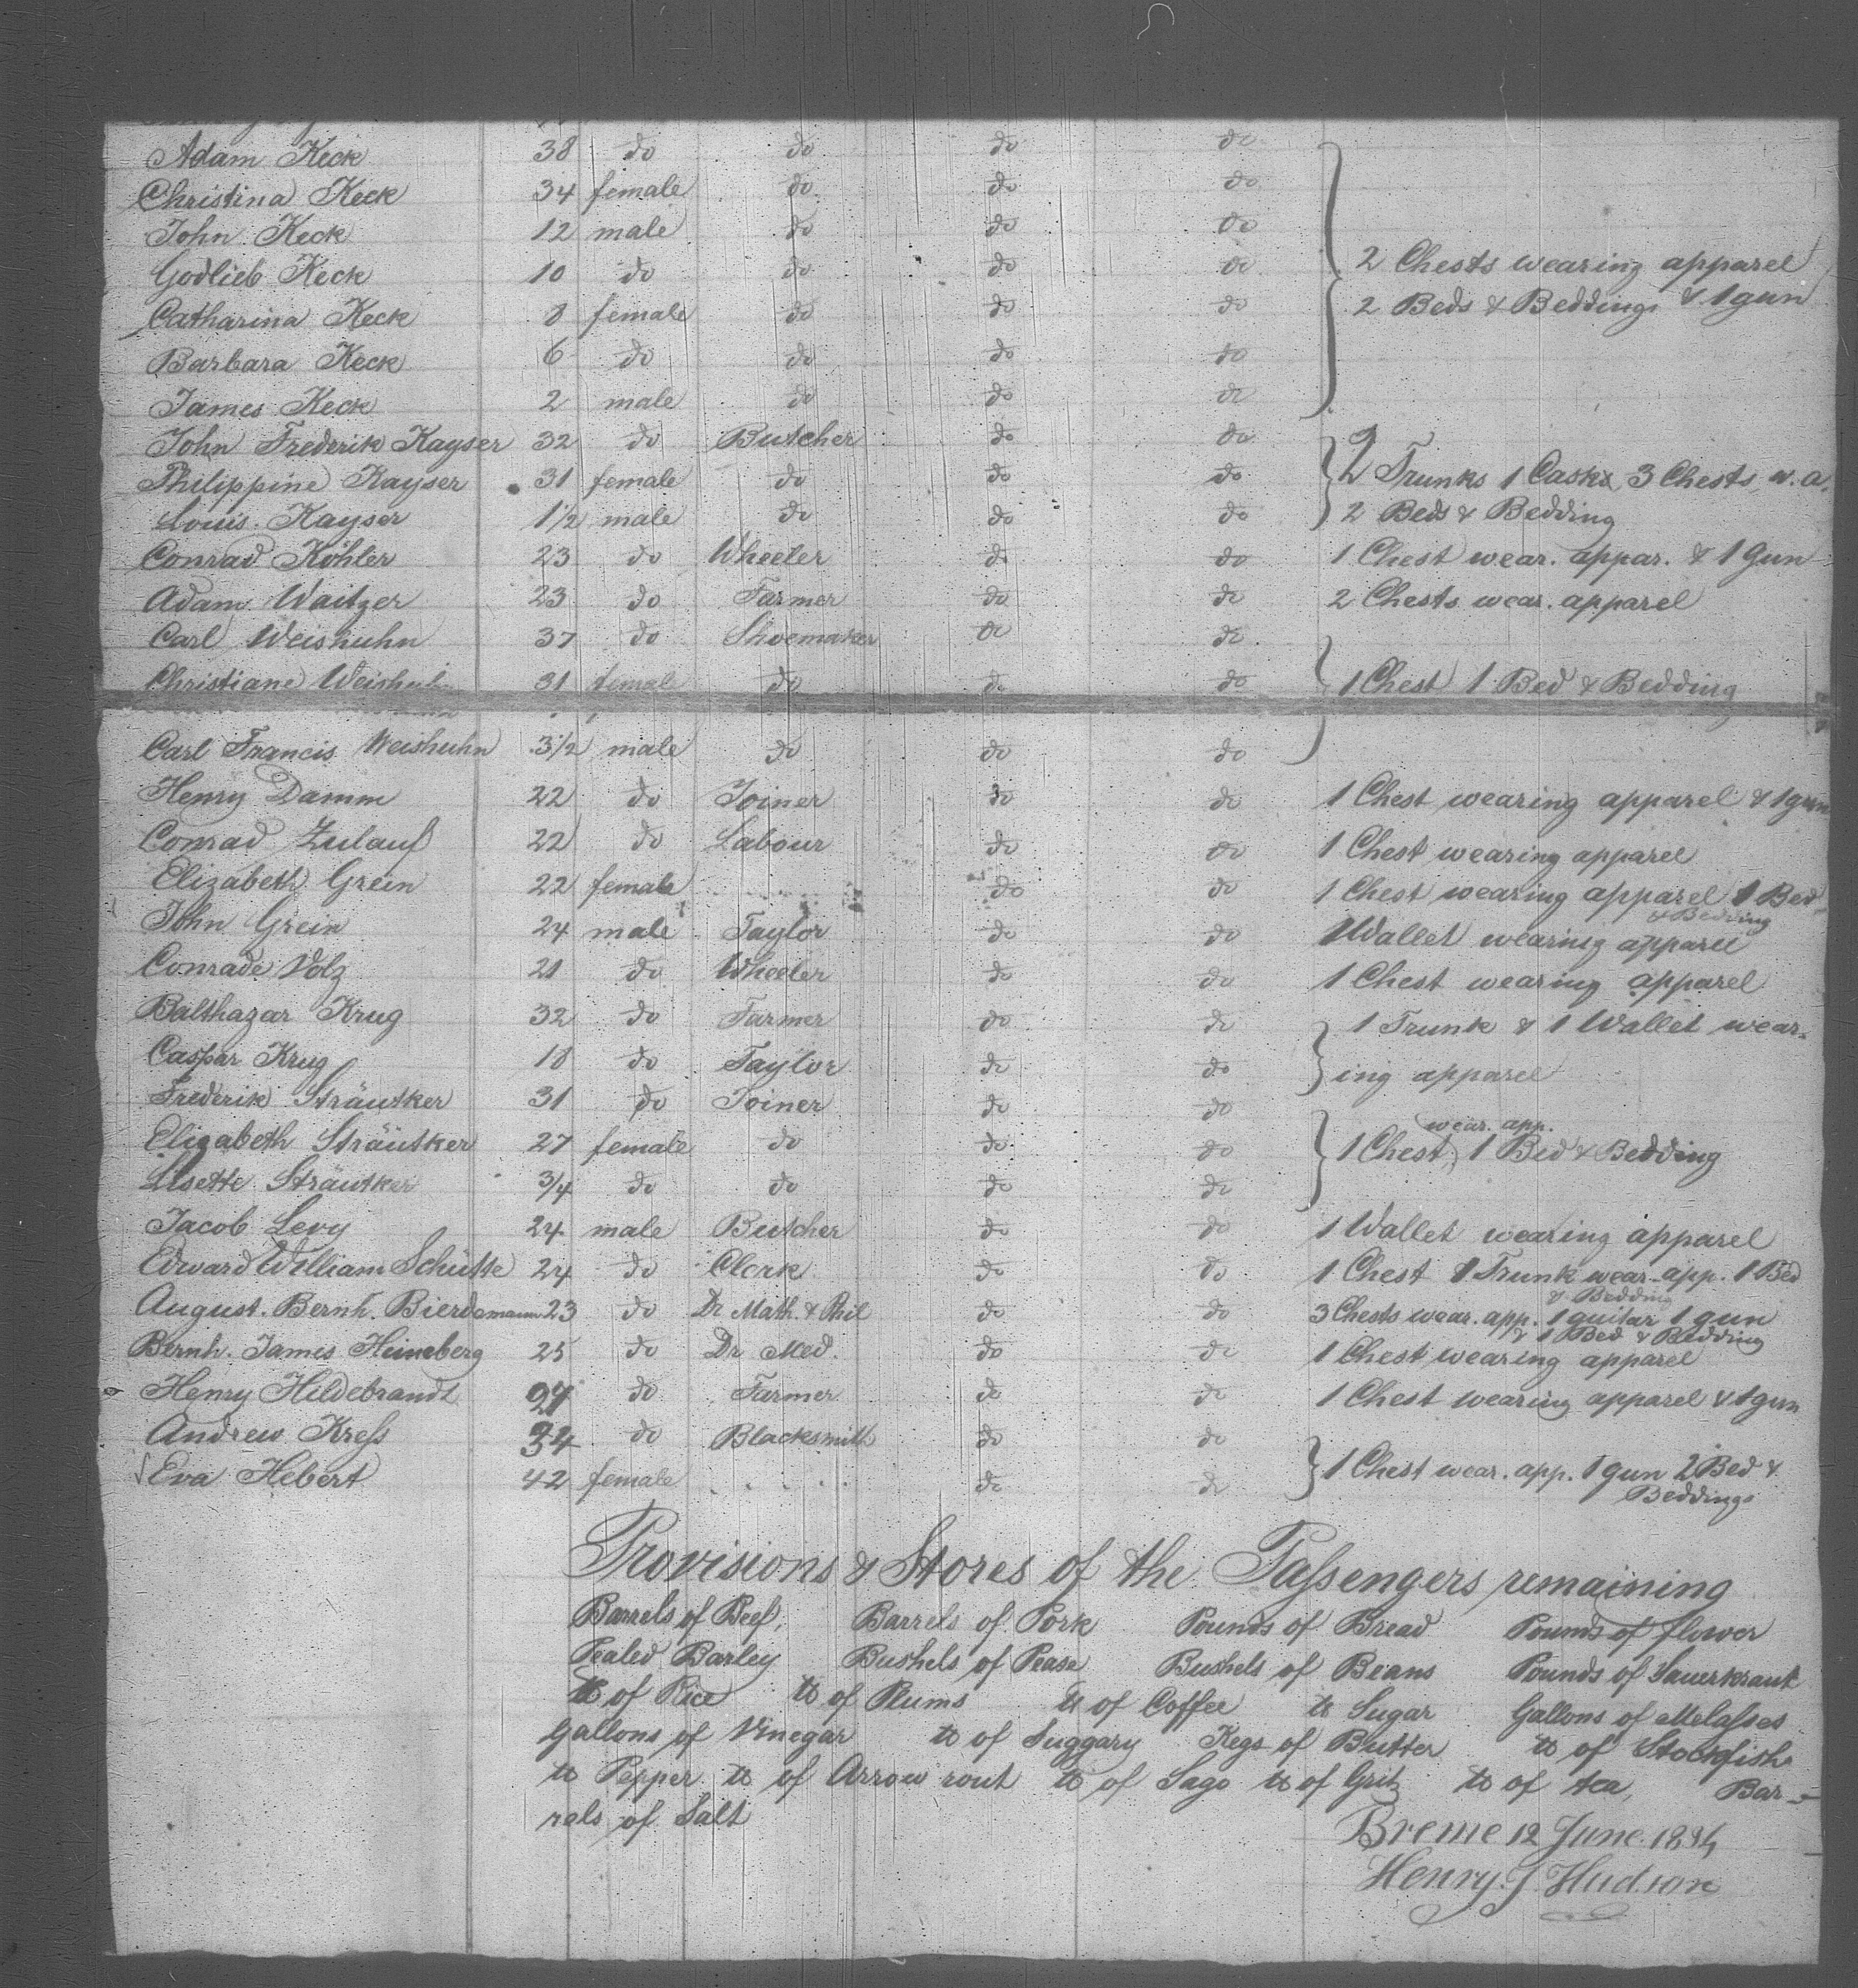 Adam Keck 38 do do do do
Christina Keck 34 female do do do
John Keck 12 male do do do
Godlieb Keck 10 do do do do 2 Chests wearing apparel
Catharina Keck 8 female do do do 2 Beds & Beddings & 1 gun
Barbara Keck 6 do do do do
James Keck 2 male do do do
John Frederik Kayser 32 do Butcher do do
Philippine Kayser 31 female do do do 2 Trunks 1 Cask 3 Chests w. a.
Louis Kayser 1 1/2 male do do do 2 Beds & Bedding
Conrad Köhler 23 do Wheeler do do 1 Chest wear. appar. & 1 Gun
Adam Waitzer 23 do Farmer do do 2 Chests wear. apparel
Carl Weishuhn 37 do Shoemaker do do
Christiane Weishuhn 31 female do do do 1 Chest 1 Bed & Bedding
Carl Francis Weishuhn 3 1/2 male do do do
Henry Damm 22 do Joiner do do 1 Chest wearing apparel & 1 gun
Conrad Zulauf 22 do Labour do do 1 Chest wearing apparel
Elizabeth Grein 22 female do do 1 Chest wearing apparel 1 Bed
& Bedding
John Grein 24 male Taylor do do 1 Wallet wearing apparel
Conrade Volz 21 do Wheeler do do 1 Chest wearing apparel
Balthazar Krug 32 do Farmer do do 1 Trunk & 1 Wallet wear-
Caspar Krug 18 do Taylor do do ing apparel
Frederik Sträutker 31 do Joiner do do
wear. app.
Elizabeth Sträutker 27 female do do do 1 Chest, 1 Bed & Bedding
Lisette Sträutker 3/4 do do do do
Jacob Levy 24 male Butcher do do 1 Wallet wearing apparel
Edward William Schütte 24 do Clerk do do 1 Chest 1 Trunk wear. app. 1 Bed
& Bedding
August. Bernh. Bierdemann 23 do Dr Math. & Phil do do 3 Chests wear. app. 1 guitar 1 gun
& 1 Bed & Bedding
Bernh. James Heineberg 25 do Dr Med. do do 1 Chest wearing apparel
Henry Hildebrandt do Farmer do do 1 Chest wearing apparel & 1 gun
Andrew Kreſs 34 do Blacksmith do do
Eva Hebert 42 female . . . . . do do 1 Chest wear. app. 1 gun 2 Bed &
Beddings
Provisions & Stores of the Paſsengers remaining
Barrels of Beef, Barrels of Pork Pounds of Bread Pounds of flower
Pealed Barley Bushels of Pease Bushels of Beans Pounds of Sauerkraut
℔ of Rice ℔ of Plums ℔ of Coffee ℔ Sugar Gallons of Melaſses
Gallons of Vinegar ℔ of Suggary Kegs of Butter ℔ of Stockfish
℔ Pepper ℔ of Arrow rout ℔ of Sago ℔ of Gritz ℔ of tea, Bar-
rels of Salt
Breme 12 June 1834
Henry J Hudson